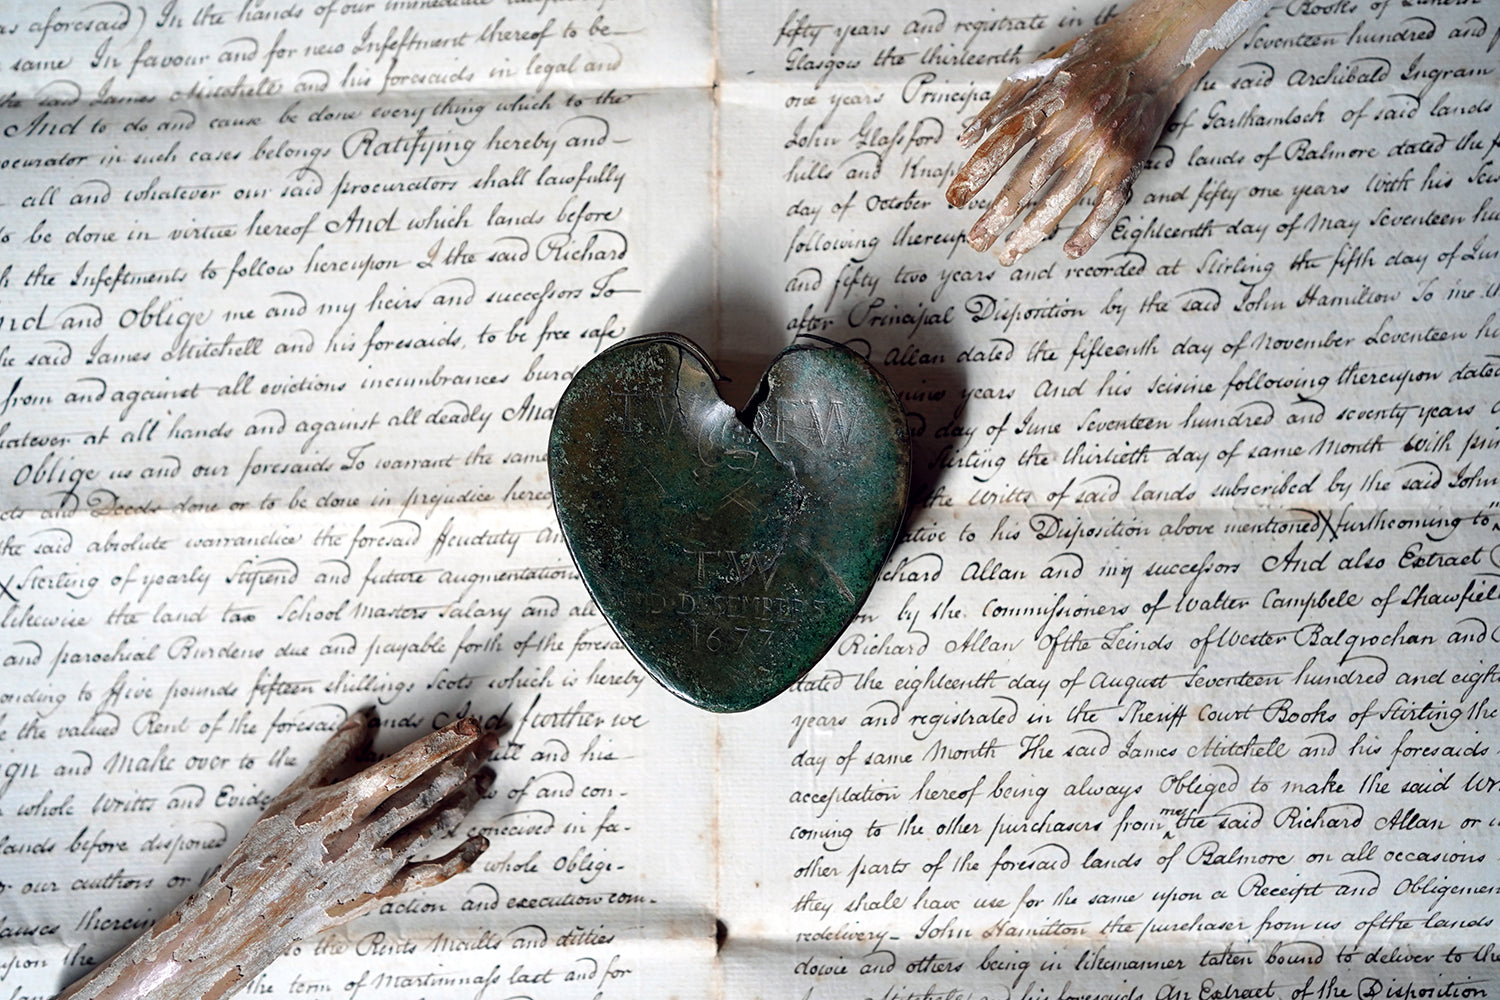 as aforesaid) In the hands of our immediate
same In favour and for new Infeftment thereof to be
the said James Mitchell and his foresaids in legal and
And to do and cause be done every thing which to the
procurator in such cases belongs Ratifying hereby and
all and whatever our said procurators shall lawfully
to be done in virtue hereof And which lands before
h the Infeftments to follow hereupon I the said Richard
and Oblige me and my heirs and successors To
he said James Mitchell and his foresaids, to be free safe
from and against all evictions incumbrances
whatever at all hands and against all deadly And
Oblige us and our foresaids To warrant the same
and Deeds done or to be done in prejudice
the said absolute warrandice the foresaid ffeuduty
Sterling of yearly Stipend and future augmentations
likewise the land tax School Masters Salary and
and parochial Burdens due and payable forth of the
to ffive pounds fifteen shillings Scots which is hereby
the valued Rent of the foresaid lands And further we
and Make over to the full and his
whole Writts and of and con-
lands before disponed conceived in fa-
or our authors or whole Obligi-
action and execution com-
upon the to the Rents Maills and duties
the term of Martinmass last and for
fifty years and registrate in the Books of
Glasgow the thirteenth Seventeen hundred and
one years Principal the said Archibald Ingram
John Glassford of Garthamlock of said lands
hills and said lands of Balmore dated the
day of October and fifty one years With his
following thereupon Eighteenth day of May Seventeen
and fifty two years and recorded at Stirling the fifth day of
after Principal Disposition by the said John Hamilton To me
Allan dated the fifteenth day of November Seventeen
nine years And his Seisine following thereupon dated
day of June Seventeen hundred and seventy years
Stirling the thirtieth day of same Month With
the Writts of said lands subscribed by the said John
relative to his Disposition above mentioned furthcoming to
Richard Allan and my successors And also Extract
by the Commissioners of Walter Campbell of Shawfield
Richard Allan Of the Teinds of Wester Balgrochan and
dated the eighteenth day of August Seventeen hundred and
years and registrated in the Sheriff Court Books of Stirling the
day of same Month The said James Mitchell and his foresaids
acceptation hereof being always Obliged to make the said
coming to the other purchasers from me the said Richard Allan or
other parts of the foresaid lands of Balmore on all occasions
they shall have use for the same upon a Receipt and
redelivery John Hamilton the purchaser from us of the lands
and others being in likemanner taken bound to deliver to the
his foresaids An Extract of the Disposition
TW FW
TW
DECEMBER 5
1677